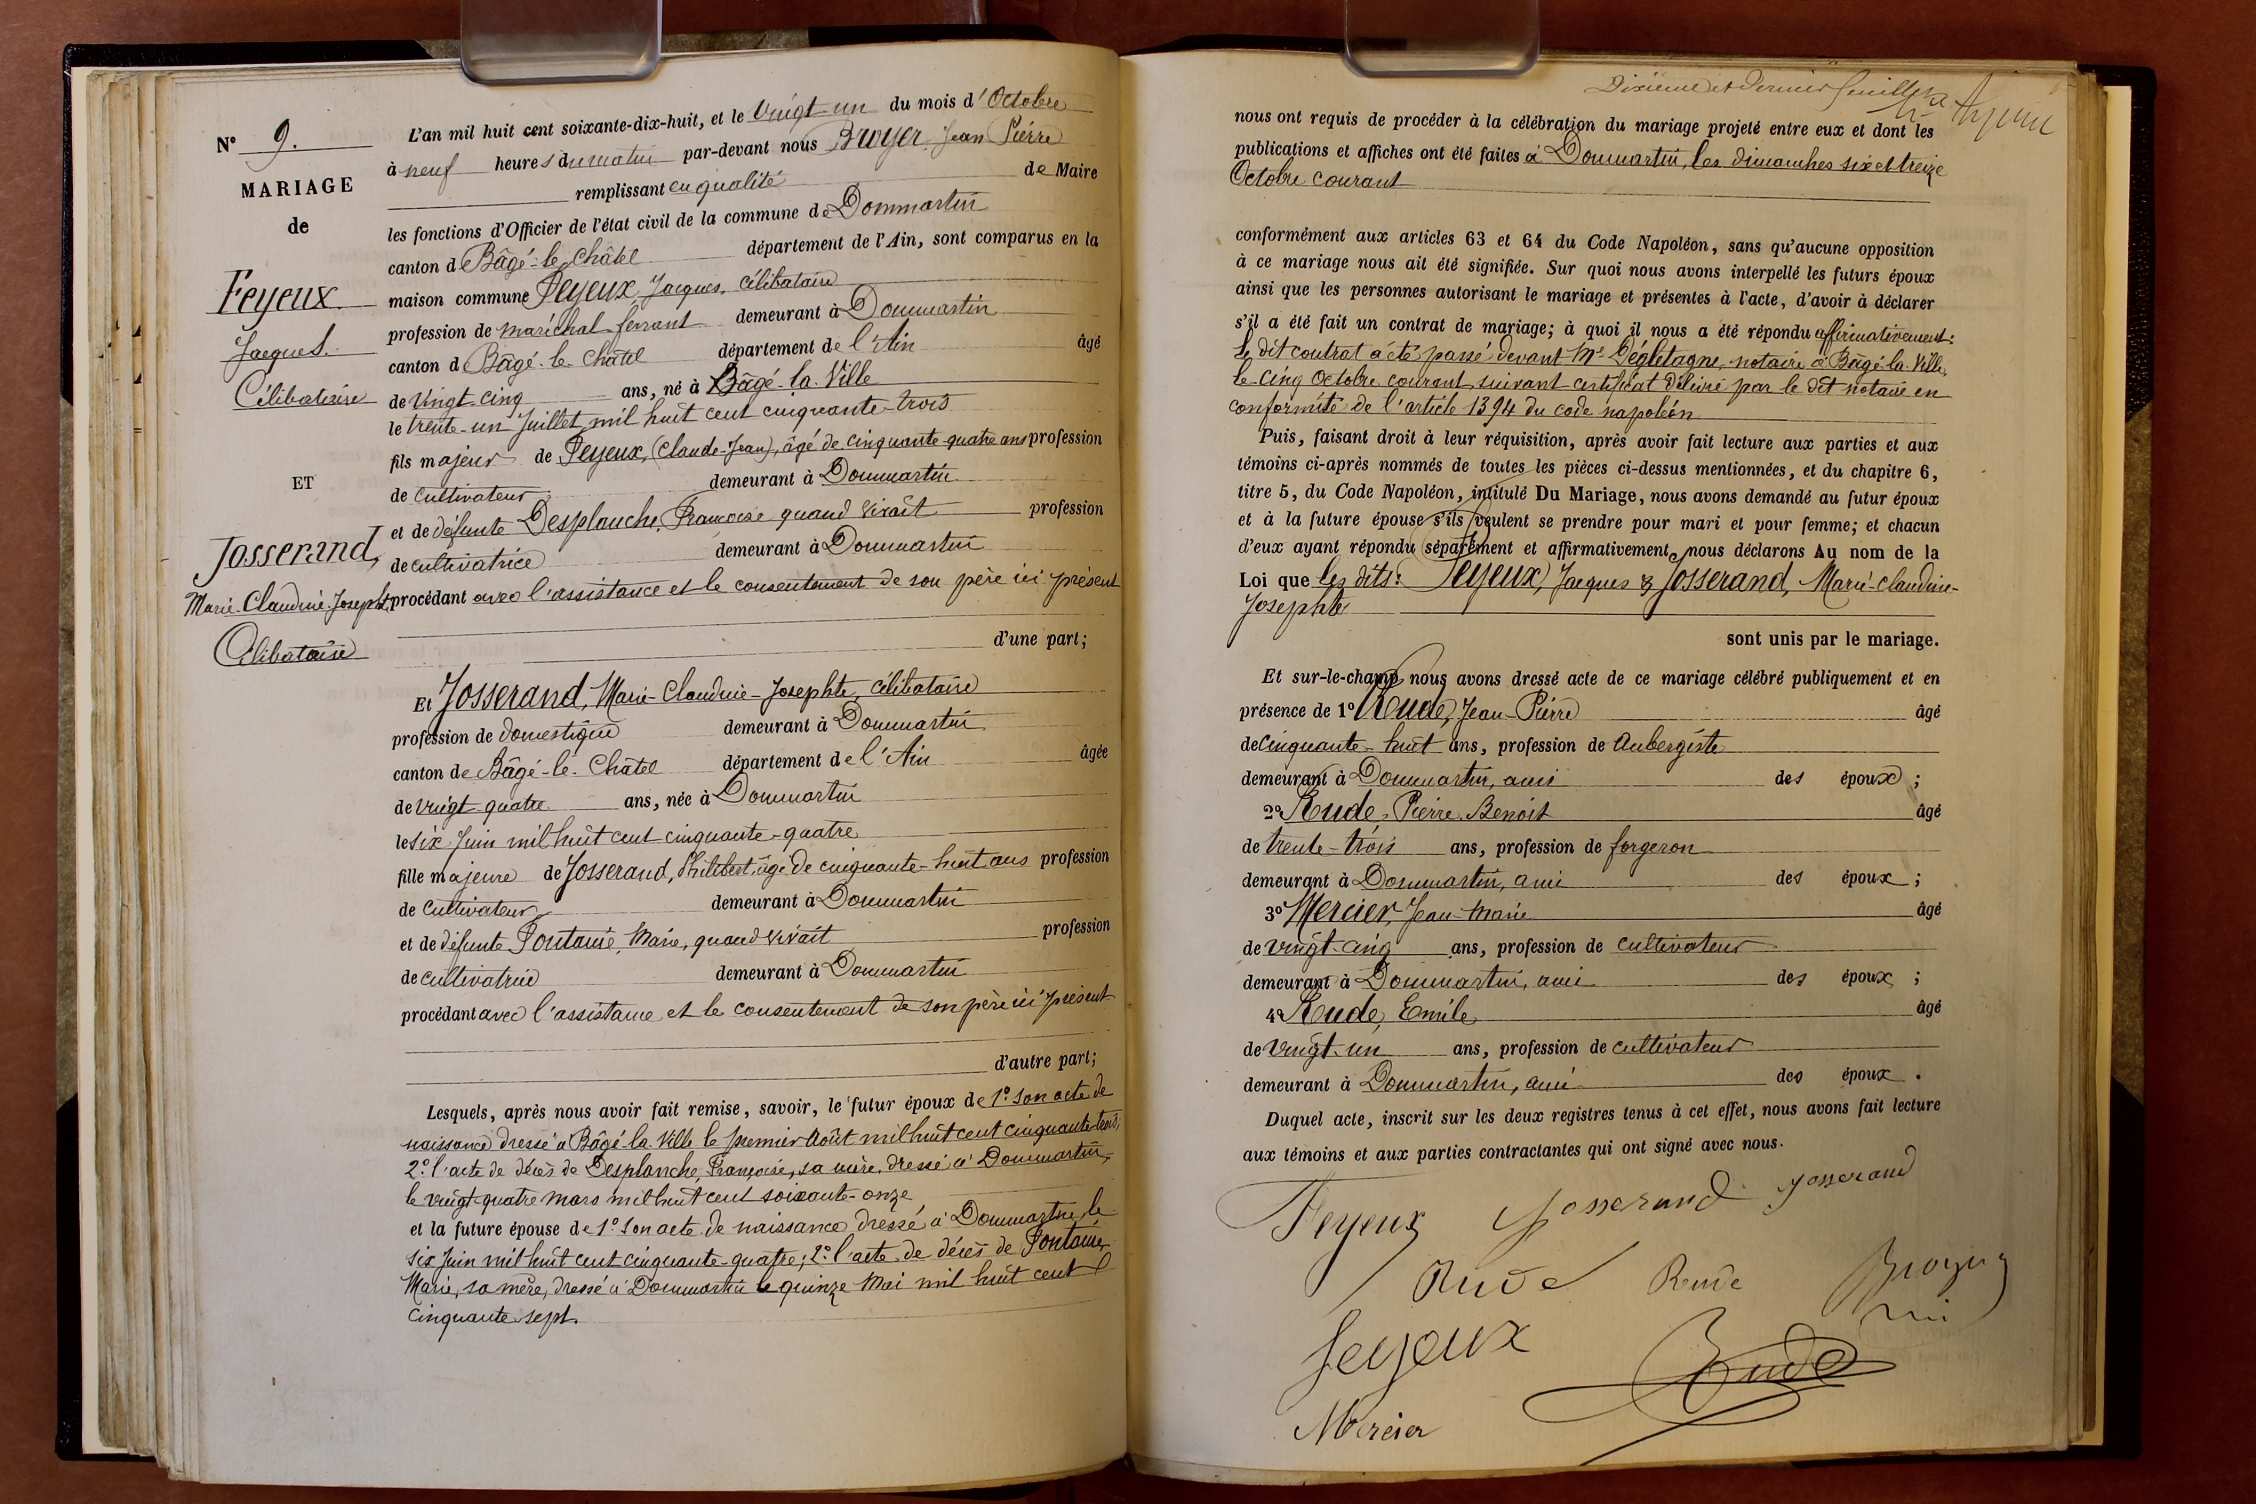 N° 9.
MARIAGE
de
Feyeux
Jacques.
Célibataire
ET
Josserand,
Marie-Claudine-Josephte,
Célibataire
L'an mil huit cent soixante-dix-huit, et le vingt-un du mois d'Octobre
à neuf heures du matin par-devant nous Broyer Jean Pierre
remplissant en qualité de Maire
les fonctions d'Officier de l'état civil de la commune de Dommartin
canton d Bâgé-le-Châtel département de l'Ain, sont comparus en la
maison commune Feyeux, Jacques, célibataire
profession de maréchal-ferrant demeurant à Dommartin
canton d Bâgé-le-Châtel département de l'Ain âgé
de vingt-cinq ans, né à Bâgé-la-Ville
le trente-un Juillet mil huit cent cinquante-trois
fils majeur de Feyeux, (Claude-Jean), âgé de cinquante-quatre ans profession
de cultivateur demeurant à Dommartin
et de défunte Desplanche, Françoise quand vivait profession
de cultivatrice demeurant à Dommartin
procédant avec l'assistance et le consentement de son père ici présent
d'une part;
Et Josserand, Marie-Claudine-Josephte, célibataire
profession de domestique demeurant à Dommartin
canton de Bâgé-le-Châtel département de l'Ain âgée
de vingt-quatre ans, née à Dommartin
le six Juin mil huit cent cinquante-quatre
fille majeure de Josserand, Philibert, âgé de cinquante-huit ans profession
de cultivateur demeurant à Dommartin
et de défunte Fontaine, Marie, quand vivait profession
de cultivatrice demeurant à Dommartin
procédant avec l'assistance et le consentement de son père ici présent
d'autre part;
Lesquels, après nous avoir fait remise, savoir, le futur époux de 1° son acte de
naissance dressé à Bâgé-la-Ville le premier Août mil huit cent cinquante-trois;
2° l'acte de décès de Desplanche, Françoise, sa mère, dressé à Dommartin,
le vingt-quatre mars mil huit cent soixante-onze
et la future épouse de 1° son acte de naissance dressé à Dommartin, le
six Juin mil huit cent cinquante-quatre; 2° l'acte de décès de Fontaine,
Marie, sa mère, dressé à Dommartin le quinze Mai mil huit cent
cinquante-sept.
Dixième et dernier feuillet
nous ont requis de procéder à la célébration du mariage projeté entre eux et dont les
publications et affiches ont été faites à Dommartin, les dimanches six et treize
Octobre courant
conformément aux articles 63 et 64 du Code Napoléon, sans qu'aucune opposition
à ce mariage nous ait été signifiée. Sur quoi nous avons interpellé les futurs époux
ainsi que les personnes autorisant le mariage et présentes à l'acte, d'avoir à déclarer
s'il a été fait un contrat de mariage; à quoi il nous a été répondu affirmativement:
le dit contrat a été passé devant Me Dégletagne, notaire à Bâgé-la-Ville,
le cinq Octobre courant, suivant certificat délivré par le dit notaire en
conformité de l'article 1394 du code napoléon
Puis, faisant droit à leur réquisition, après avoir fait lecture aux parties et aux
témoins ci-après nommés de toutes les pièces ci-dessus mentionnées, et du chapitre 6,
titre 5, du Code Napoléon, intitulé Du Mariage, nous avons demandé au futur époux
et à la future épouse s'ils veulent se prendre pour mari et pour femme; et chacun
d'eux ayant répondu séparément et affirmativement, nous déclarons Au nom de la
Loi que les dits: Feyeux, Jacques & Josserand, Marie-Claudine-
Josephte
sont unis par le mariage.
Et sur-le-champ nous avons dressé acte de ce mariage célébré publiquement et en
présence de 1° Rude, Jean-Pierre âgé
de cinquante-huit ans, profession de Aubergiste
demeurant à Dommartin, ami des époux;
2° Rude, Pierre-Benoit âgé
de trente-trois ans, profession de forgeron
demeurant à Dommartin, ami des époux;
3° Mercier, Jean-Marie âgé
de vingt-cinq ans, profession de cultivateur
demeurant à Dommartin, ami des époux;
4° Rude, Emile âgé
de vingt-un ans, profession de cultivateur
demeurant à Dommartin, ami des époux.
Duquel acte, inscrit sur les deux registres tenus à cet effet, nous avons fait lecture
aux témoins et aux parties contractantes qui ont signé avec nous.
Feyeux Josserand Josserand
Rude Rude Broyer
Feyeux Rude
Mercier